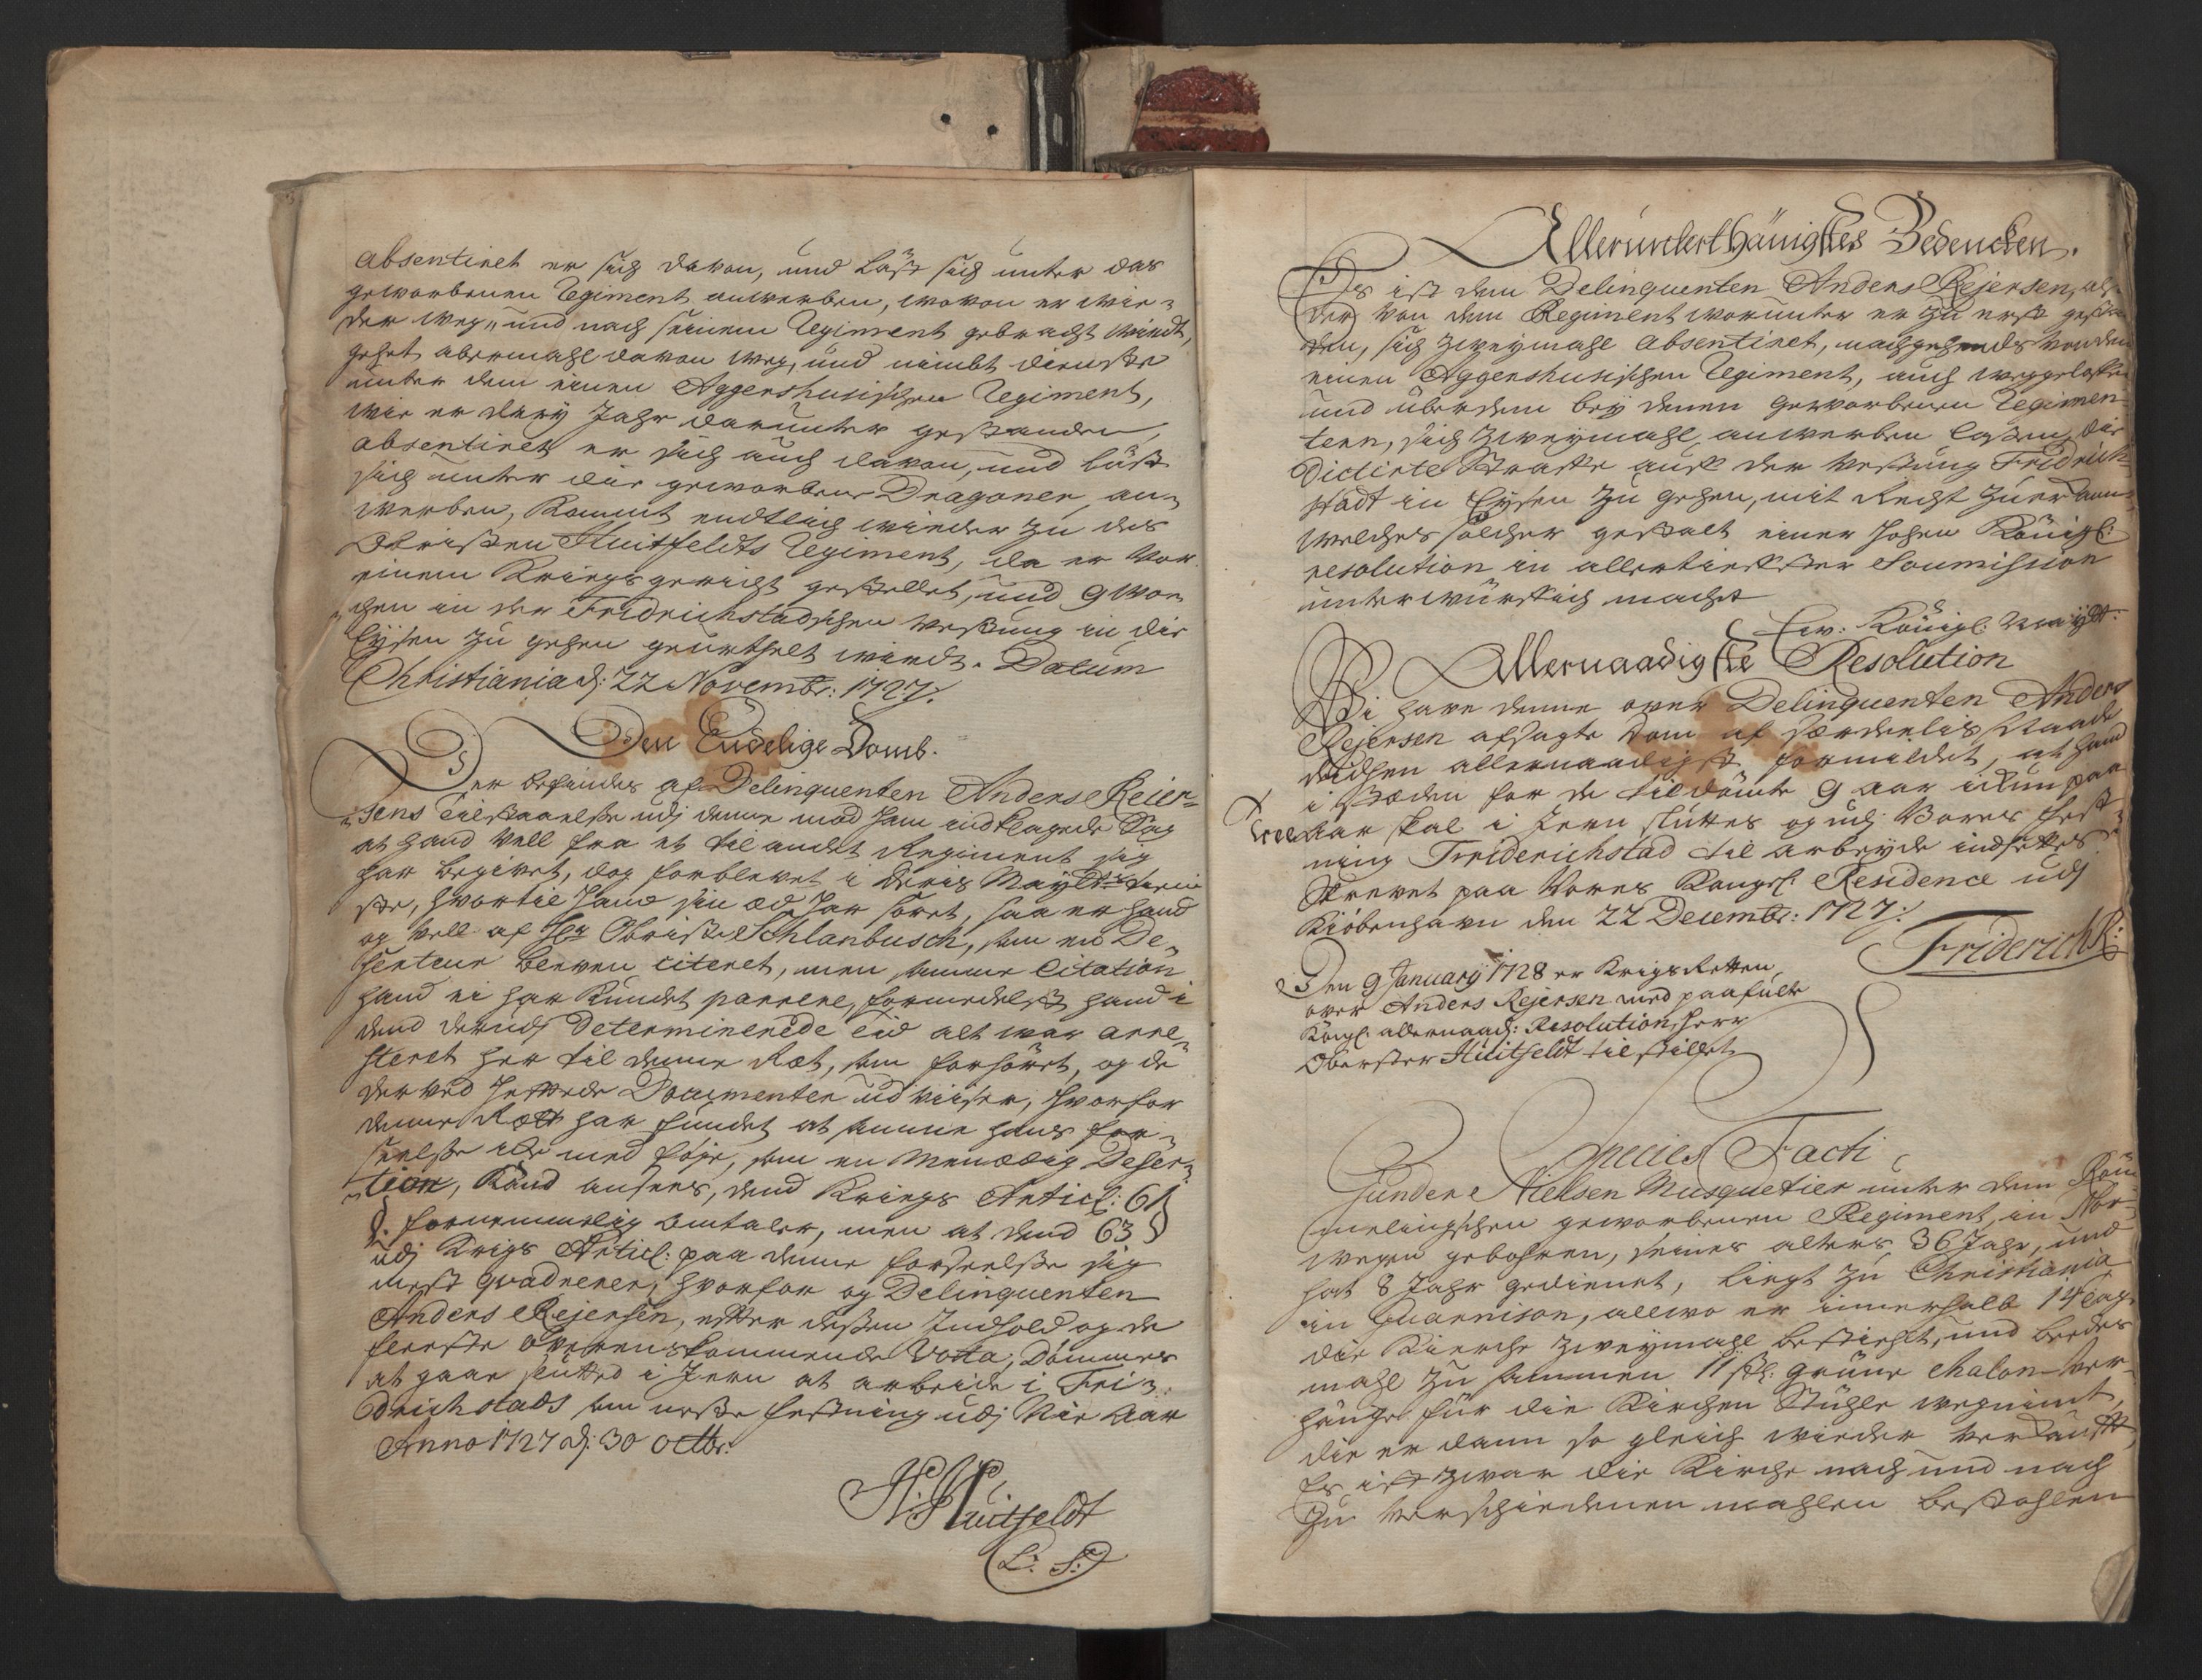 absentiret er sich davon, und läst sich unter das
geworbenen Regiment anwerben, wovon er wie-
der weg- und nach seinem Regiment gebracht wirdt,
gehet abermahl davon weg, und nimbt dienste
unter dem einen Aggershusischen Regiment,
wie er drey Jahr darunter gestanden,
absentiret er sich auch davon, und läst
sich unter die geworbene Dragoner an-
werben, kommt endtlich wieder zu des
Obristen Huitfeldts Regiment, da er vor
einem Kriegsgericht gestellet, und 9 wo-
chen in der Fridrichstadschen Vestung in die
Eysen zu gehen geurthelt wirdt. Datum
Christiania d: 22 Novembr: 1727.
Den Endelige Domb.
Der befindes af Delinquenten Anders Reier-
sens tilstaaelse udj denne mod ham indklagede Sag
at hand vell fra et til andet Regiment sig
har begivet, dog forblevet i Deris Mayts tieni-
ste, hvortil hand sin æd har soret, saa er hand
og vell af Hr Obriste Schlanbusch, som en De-
serteur bleven citeret, men samme Citation
hand ei har kundet parrere, formedelst hand i
dend derudj Determinerede tid alt war arre-
steret her til denne Ræt, som forhöret, og de
derved heftede Documenter udviiser, hvorfor
denne Rætt har fundet at samme hans for-
seelse icke med föje, som en meneedig Deser-
tion, kand ansees, dend Kriegs Articl: 61
§. fornemmelig omtaler, men at dend 63 §
udj Krigs Articl: paa denne forseelse sig
mest qvadrerer, hvorfor og Delinquenten
Anders Rejersen, efter dessen Indhold og de
fleeste overenskommende Vota, Dömmes
at gaae slutted i Jern at arbeide i Fri-
drichstads som neste festning udj Nie Aar
Anno 1727 d: 30 Octbr:
H. Huitfeldt
L. S.
Allerunterthänigstes Bedencken.
Es ist dem Delinquenten Anders Rejersen, als
der von dem Regiment worunter er zu erst gestan
den, sich zweymahl absentiret, nachgehends von dem
einen Aggershusischen Regiment, auch weggelaffen
und überdem bey denen geworbenen Regimen-
tern, sich zweymahl, anwerben lassen, die
Dictirte Straffe auf der Vestung Fridrich-
stadt in Eysen zu gehen, mit Recht zuerkannt
welches solcher gestalt einer hohen Königl:
resolution in allertieffster Soumission
unterwürffig macht
Ew: Königl: Mayst:
Allernaadigste Resolution
Vi have denne over Delinquenten Anders
Rejersen afsagte Dom af særdeelis Naade
allernaadigst formildet, at hand
i stæden for de tildömte 9 aar ickun paa
tvee Aar skal i Jern sluttes og udj Vores fest-
ning Friderichstad til arbeyde indsettes
Skrevet paa Vores Kongel: Residence udj
Kiöbenhavn den 22 Decembr: 1727.
Friderich R:
Den 9 January 1728 er Krigs Retten
over Anders Rejersen med paafulte
Kongl: allernaad: Resolution, Herr
Oberster Huitfeldt tilstillet
Species Facti
Gunder Nielsen Musquetier unter dem Röm-
melingschen geworbenen Regiment, in Nor-
wegen gebohren, seines alters 36 Jahr, und
hat 8 Jahr gedienet, liegt zu Christiania
in Guarnison, allwo er innerhalb 14 tage
die Kirche zweymahl bestiehlt, und beedes
mahl zusammen 11 st: grüne chalon-Vor-
hänge für die Kirchen Stühle wegnimt,
die er dann so gleich wieder verkaufft,
Es ist zwar die Kirche nach und nach
zu verschiedenen mahlen bestohlen